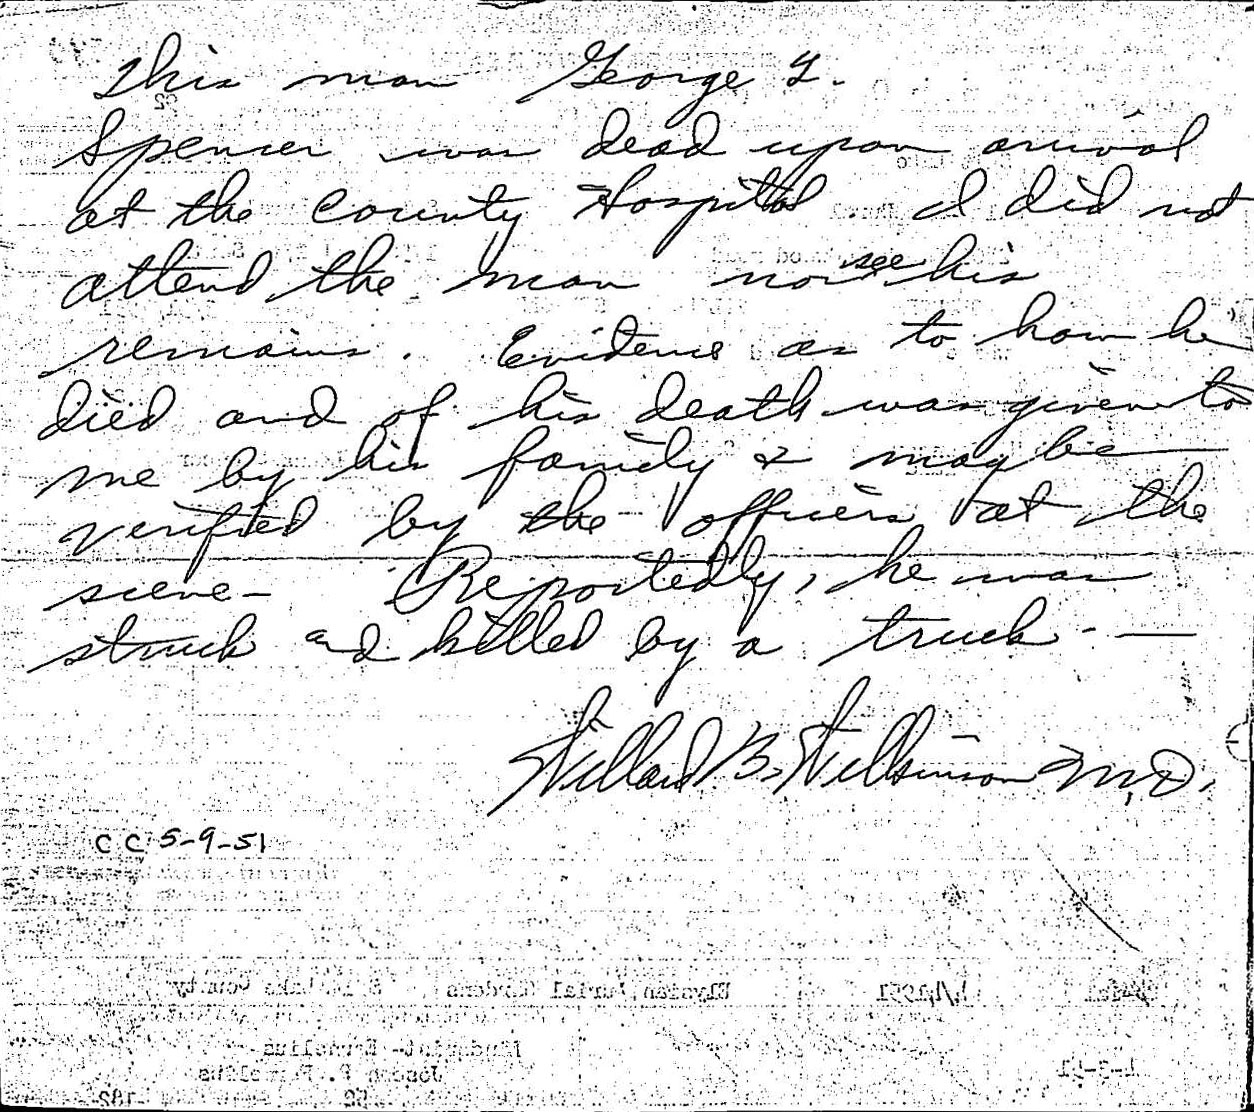 This man George Y.
Spencer was dead upon arrival
at the County Hospital I did not
attend the man nor see his
remains. Evidence as to how he
died and of his death was given to
me by his family & may be
verified by the officers at the
scene- Reportedly, he was
struck and killed by a truck-
Willard B. Wilkinson M.D.
CC 5-9-51
Elysian Burial Gardens County
1/4/1951
Joseph
1-3-51